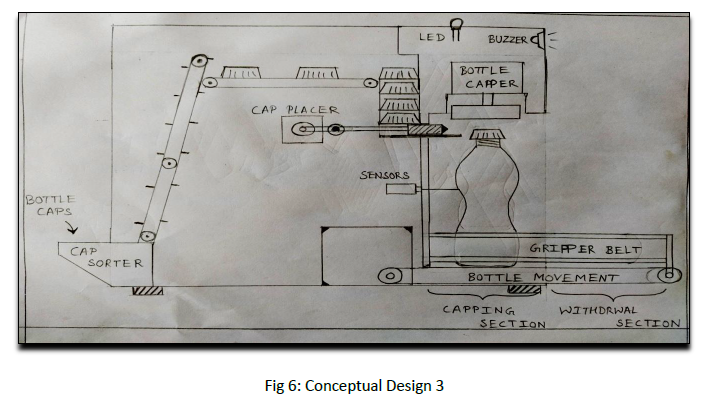 LED
BUZZER
BOTTLE
CAPPER
CAP PLACER
SENSORS
BOTTLE
CAPS
CAP
SORTER
GRIPPER BELT
BOTTLE MOVEMENT
CAPPING
SECTION
WITHDRWAL
SECTION
Fig 6: Conceptual Design 3